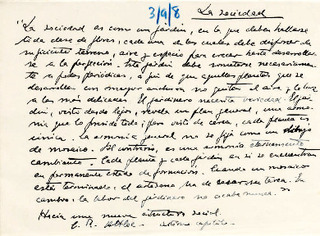 3/9/8
La sociedad
"La sociedad es como un jardín, en la que deben hallarse
toda clase de flores, cada una de las cuales debe disponer de
suficiente terreno, aire y espacio para crecer hasta desarrollar-
se a la perfección. Este jardín debe someterse necesariamen-
te a podas periódicas, a fin de que aquellas plantas que se
desarrollan con mayor no quiten el aire y la luz
a las más delicadas. El jardinero necesita variedad. El jar-
dín, visto desde lejos, revela un plan general, una armo-
nía que lo preside todo; pero visto de cerca, cada planta es
única. La armonía general no se fija como un dibujo
de mosaico. Al contrario, es una armonía eternamente
cambiante. Cada planta y cada jardín en sí se encuentran
en permanente estado de formación. Cuando un mosaico
está terminado, el artesano ha de cesar su tarea. En
cambio, la labor del jardinero no acaba nunca."
Hacia una nueva estructura social.
capítulo